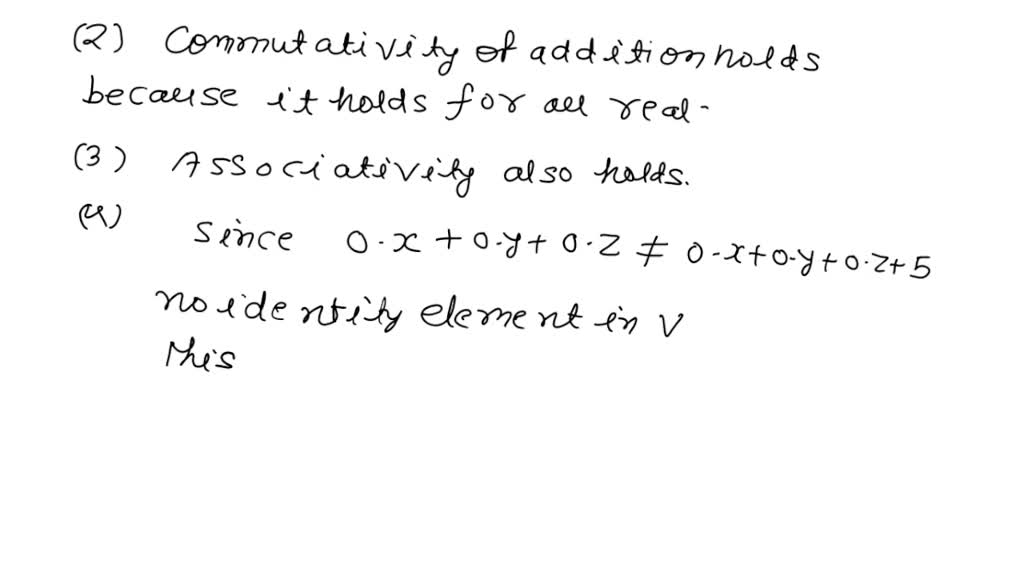 (2) Commutativity of addition holds
because it holds for all real-
(3) Associativity also holds.
(4)
Since 0·x + 0·y + 0·z ≠ 0·x+0·y+0·z+5
no identity element in V
This